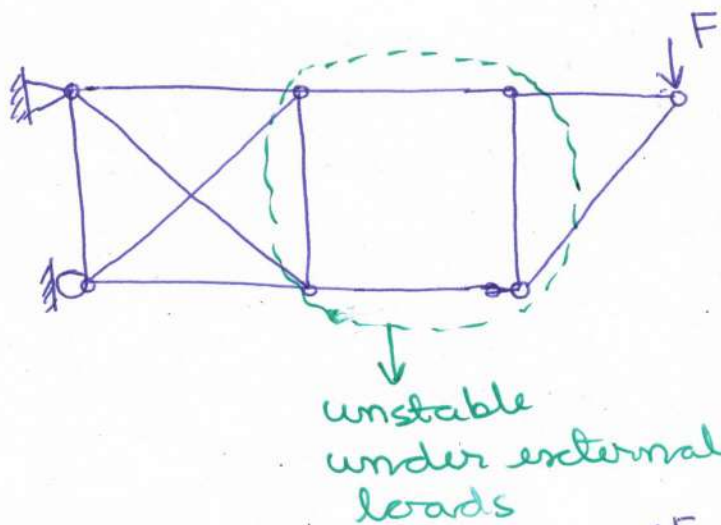 F
unstable
under external
loads
F